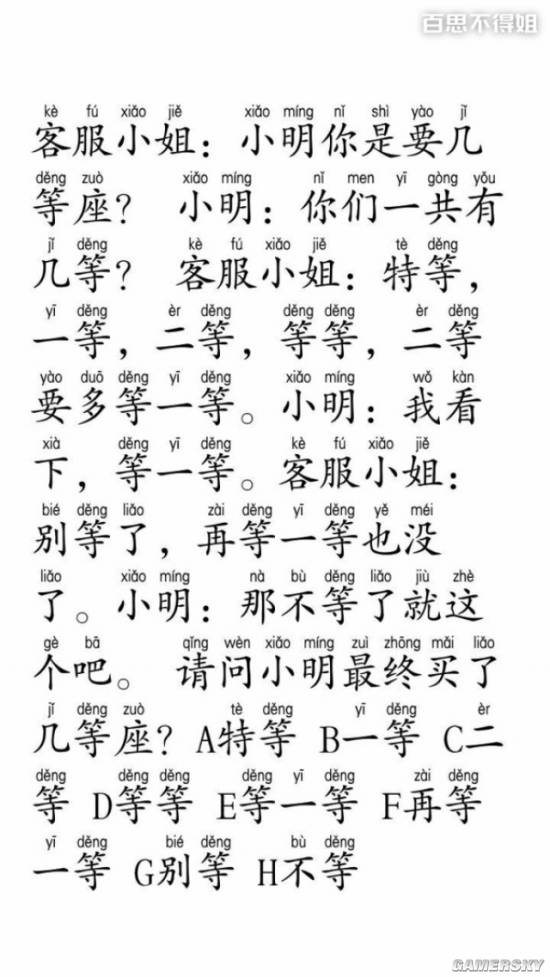 百思不得姐
kè fú xiǎo jiě xiǎo míng nǐ shì yào jǐ
客服小姐：小明你是要几
děng zuò xiǎo míng nǐ men yī gòng yǒu
等座？ 小明：你们一共有
jǐ děng kè fú xiǎo jiě tè děng
几等？ 客服小姐：特等，
yī děng èr děng děng děng èr děng
一等，二等，等等，二等
yào duō děng yī děng xiǎo míng wǒ kàn
要多等一等。小明：我看
xià děng yī děng kè fú xiǎo jiě
下，等一等。客服小姐：
bié děng liǎo zài děng yī děng yě méi
别等了，再等一等也没
liǎo xiǎo míng nà bù děng liǎo jiù zhè
了。小明：那不等了就这
gè bā qǐng wèn xiǎo míng zuì zhōng mǎi liǎo
个吧。 请问小明最终买了
jǐ děng zuò tè děng yī děng èr
几等座？A特等 B一等 C二
děng děng děng děng yī děng zài děng
等 D等等 E等一等 F再等
yī děng bié děng bù děng
一等 G别等 H不等
GAMERSKY